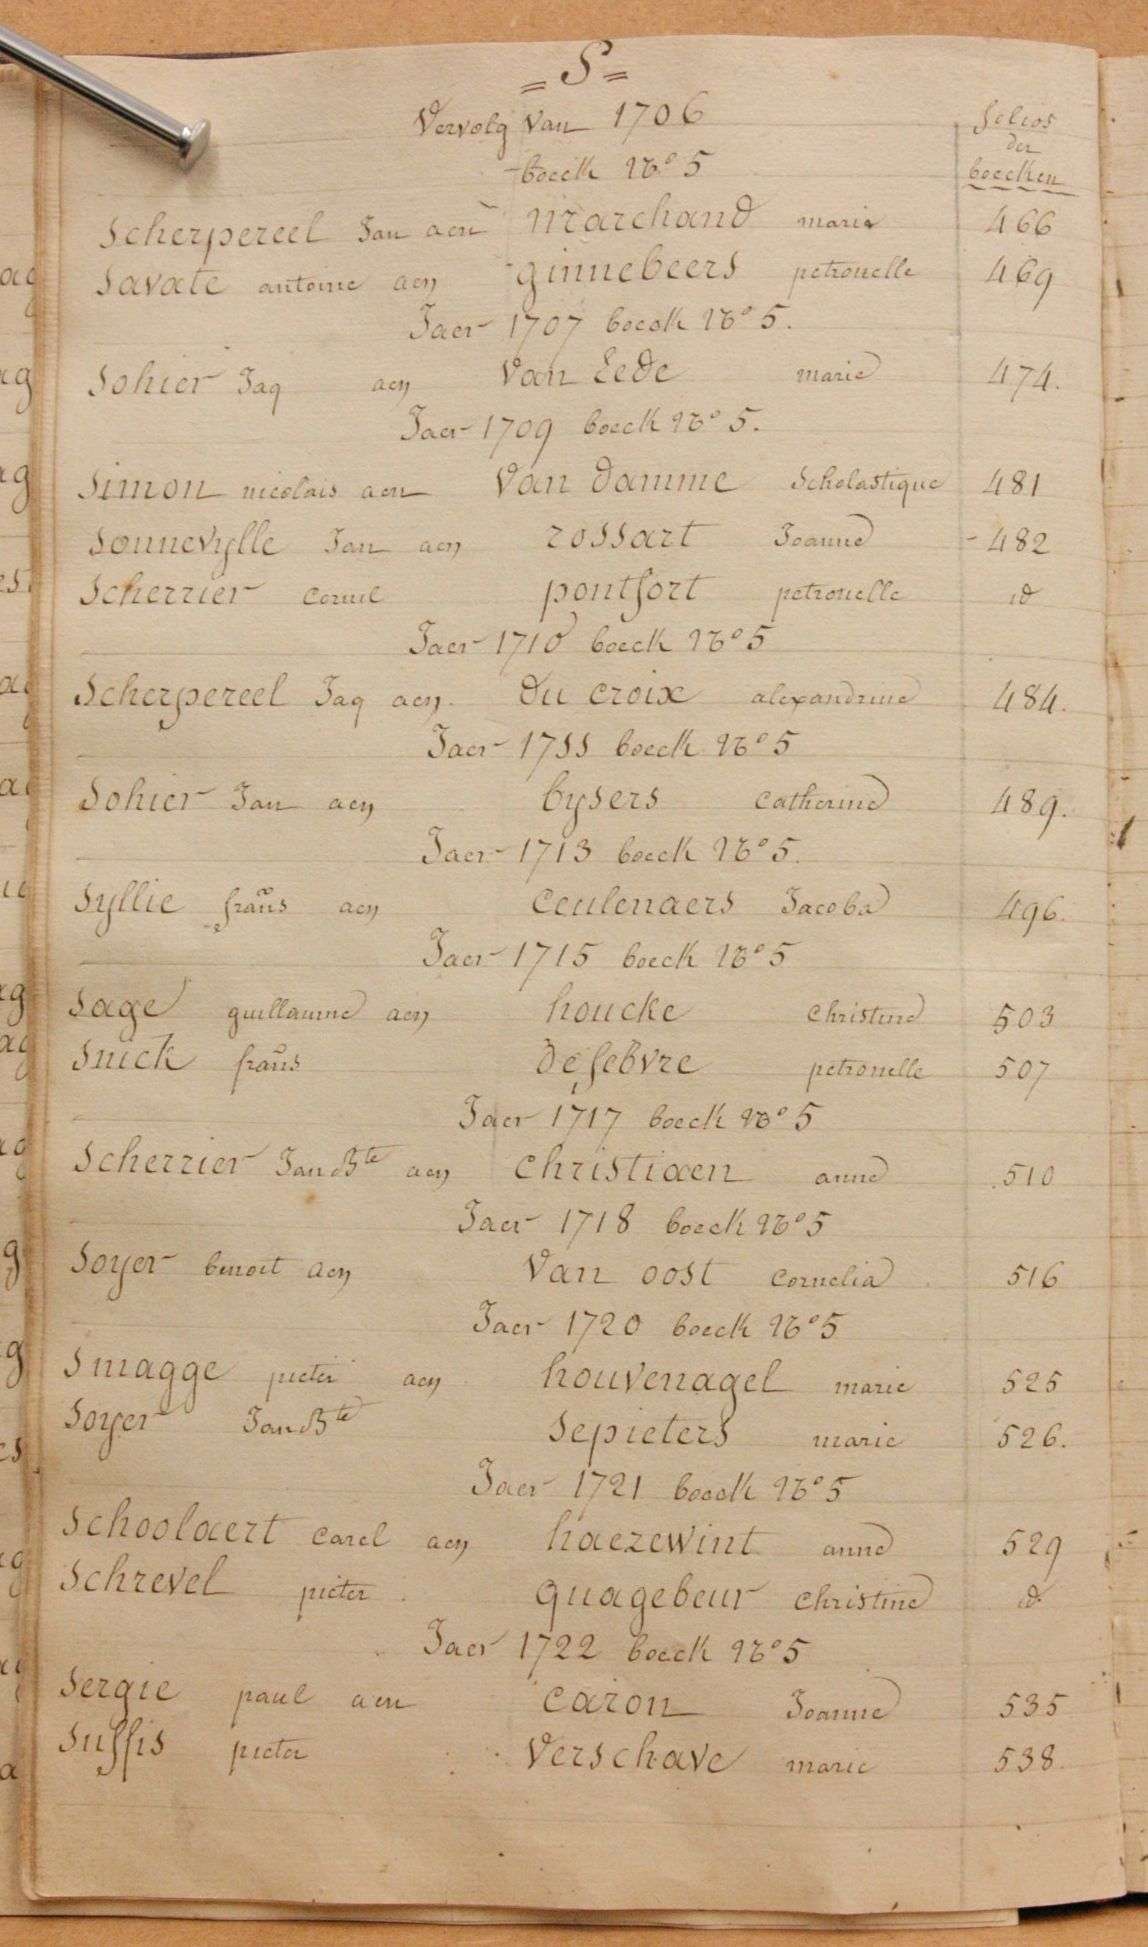 = S =
Vervolg van 1706
boeck No 5
folios
der
boecken
Scherpereel Jan aen marchand marie 466
Savate antoine aen ginnebeers petronelle 469
Jaer 1707 boeck No 5.
Sohier Jaq aen Van Eede marie 474.
Jaer 1709 boeck No 5.
Simon nicolais aen Van damme Scholastique 481
Sonnevylle Jan aen rossart Joanne 482
Scherrier cornil pontfort petronelle id
Jaer 1710 boeck No 5
Scherpereel Jaq aen. du croix alexandrine 484.
Jaer 1711 boeck No 5
Sohier Jan aen bysers catherine 489.
Jaer 1713 boeck No 5.
Syllie frans aen Ceulenaers Jacoba 496.
Jaer 1715 boeck No 5
Sage guillaume aen houcke christine 503
Snick frans defebvre petronelle 507
Jaer 1717 boeck No 5
Scherrier Jan Bte aen christiaen anne 510
Jaer 1718 boeck No 5
Soyer benoit aen Van oost cornelia 516
Jaer 1720 boeck No 5
Smagge pieter aen houvenagel marie 525
Soyer Jan Bte Sepieters marie 526.
Jaer 1721 boeck No 5
Schoolaert carel aen haezewint anne 529
Schrevel pieter quagebeur christine id.
Jaer 1722 boeck No 5
Sergie paul aen caron Joanne 535
Suffis pieter Verschave marie 538